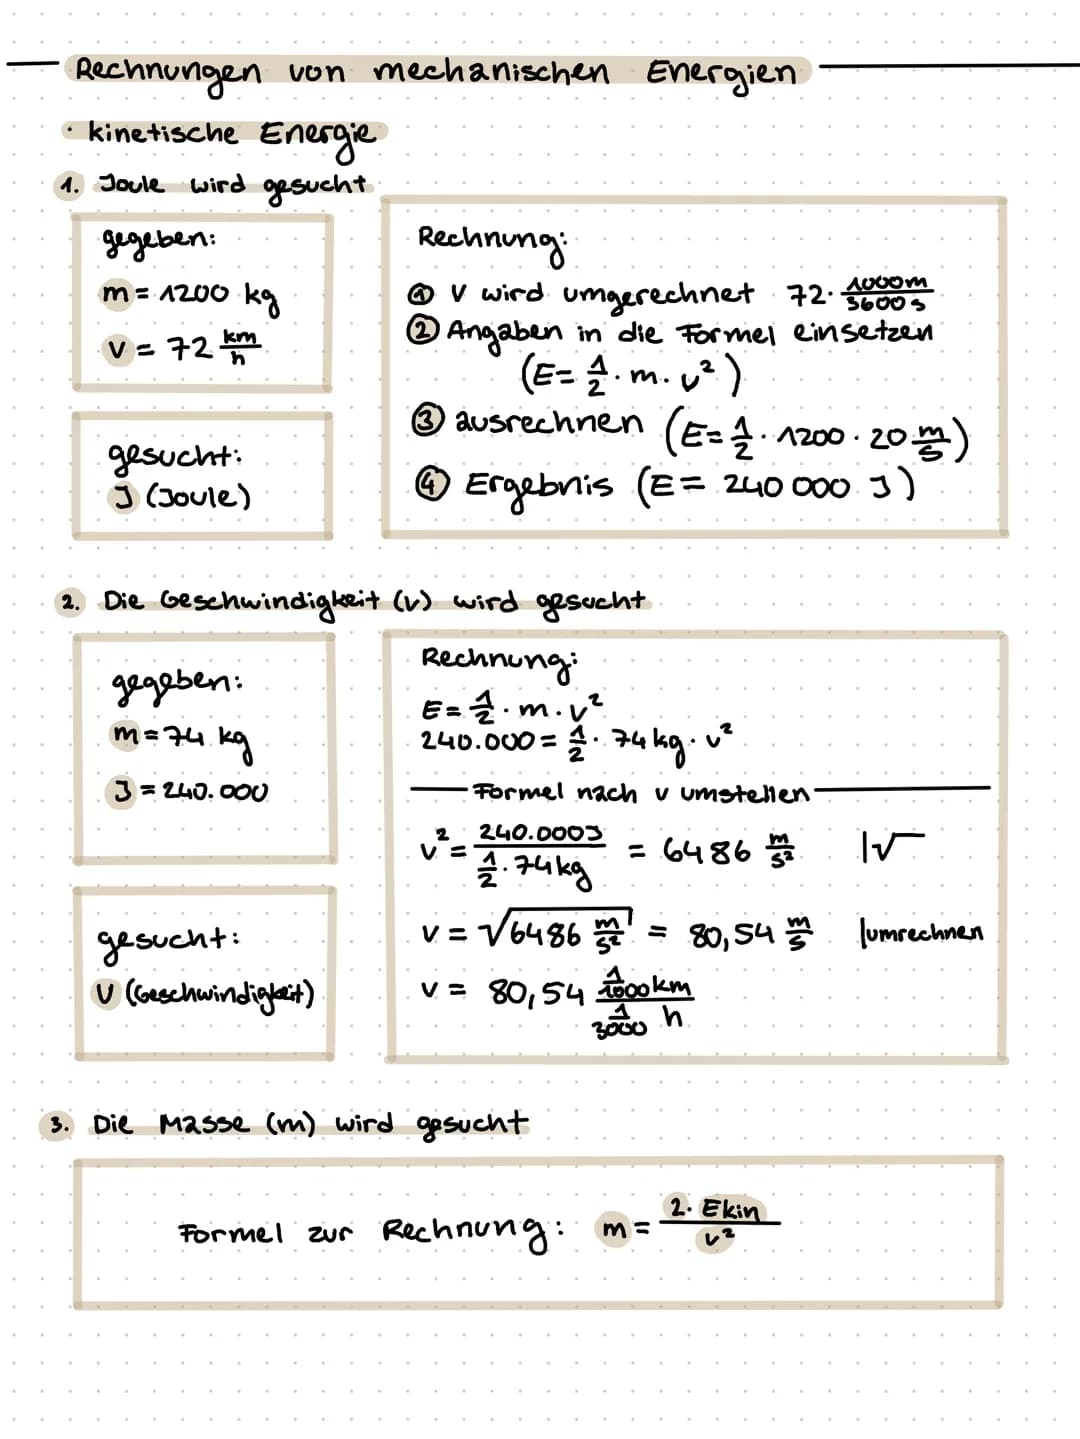 Rechnungen von mechanischen Energien
· kinetische Energie
1. Joule wird gesucht
gegeben:
m = 1200 kg
v = 72 km/h
gesucht:
J (Joule)
Rechnung:
① v wird umgerechnet 72 · 1000m/3600s
② Angaben in die Formel einsetzen
(E = 1/2 · m · v²)
③ ausrechnen (E = 1/2 · 1200 · 20 m/s)
④ Ergebnis (E = 240 000 J)
2. Die Geschwindigkeit (v) wird gesucht
gegeben:
m = 74 kg
J = 240.000
gesucht:
v (Geschwindigkeit)
Rechnung:
E = 1/2 · m · v²
240.000 = 1/2 · 74 kg · v²
Formel nach v umstellen
v² = 240.000J / 1/2 · 74 kg = 6486 m/s² |√
v = √6486 m/s² = 80,54 m/s |umrechnen
v = 80,54 1/1000 km / 1/3000 h
3. Die Masse (m) wird gesucht
Formel zur Rechnung: m = 2 · Ekin / v²